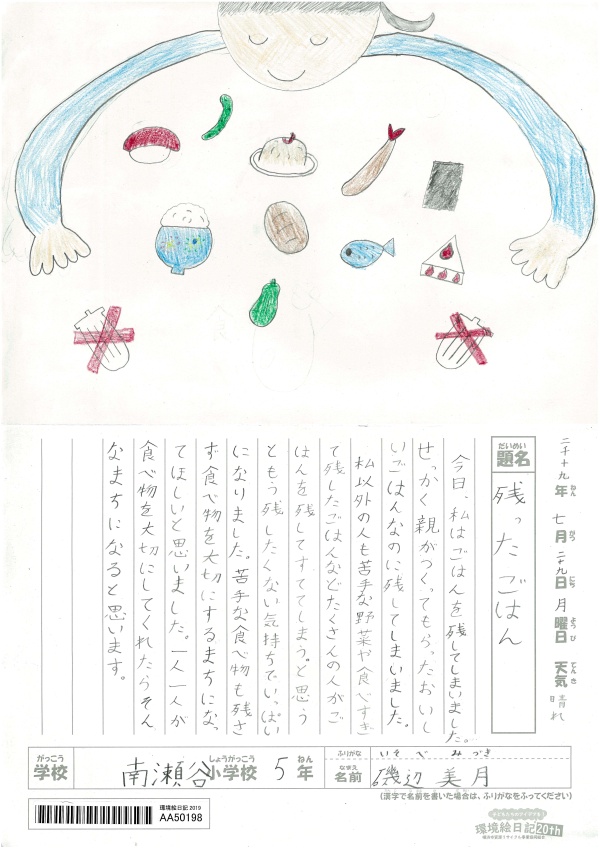 二千十九年 七月 二十九日 月曜日 天気 晴れ
ねん がつ にち ようび てんき
だいめい
題名
残ったごはん
今日、私はごはんを残してしまいました。
せっかく親がつくってもらったおいし
いごはんなのに残してしまいました。
私以外の人も苦手な野菜や食べすぎ
て残したごはんなどたくさんの人がご
はんを残してすててしまう。と思う
ともう残したくない気持ちでいっぱい
になりました。苦手な食べ物も残さ
ず食べ物を大切にするまちになっ
てほしいと思いました。一人一人が
食べ物を大切にしてくれたらそん
なまちになると思います。
がっこう
学校
南瀬谷小学校 5年
しょうがっこう ねん
ふりがな
いそべ みづき
なまえ
名前
磯辺 美月
(漢字で名前を書いた場合は、ふりがなをふってください)
環境絵日記 2019
AA50198
環境絵日記20th